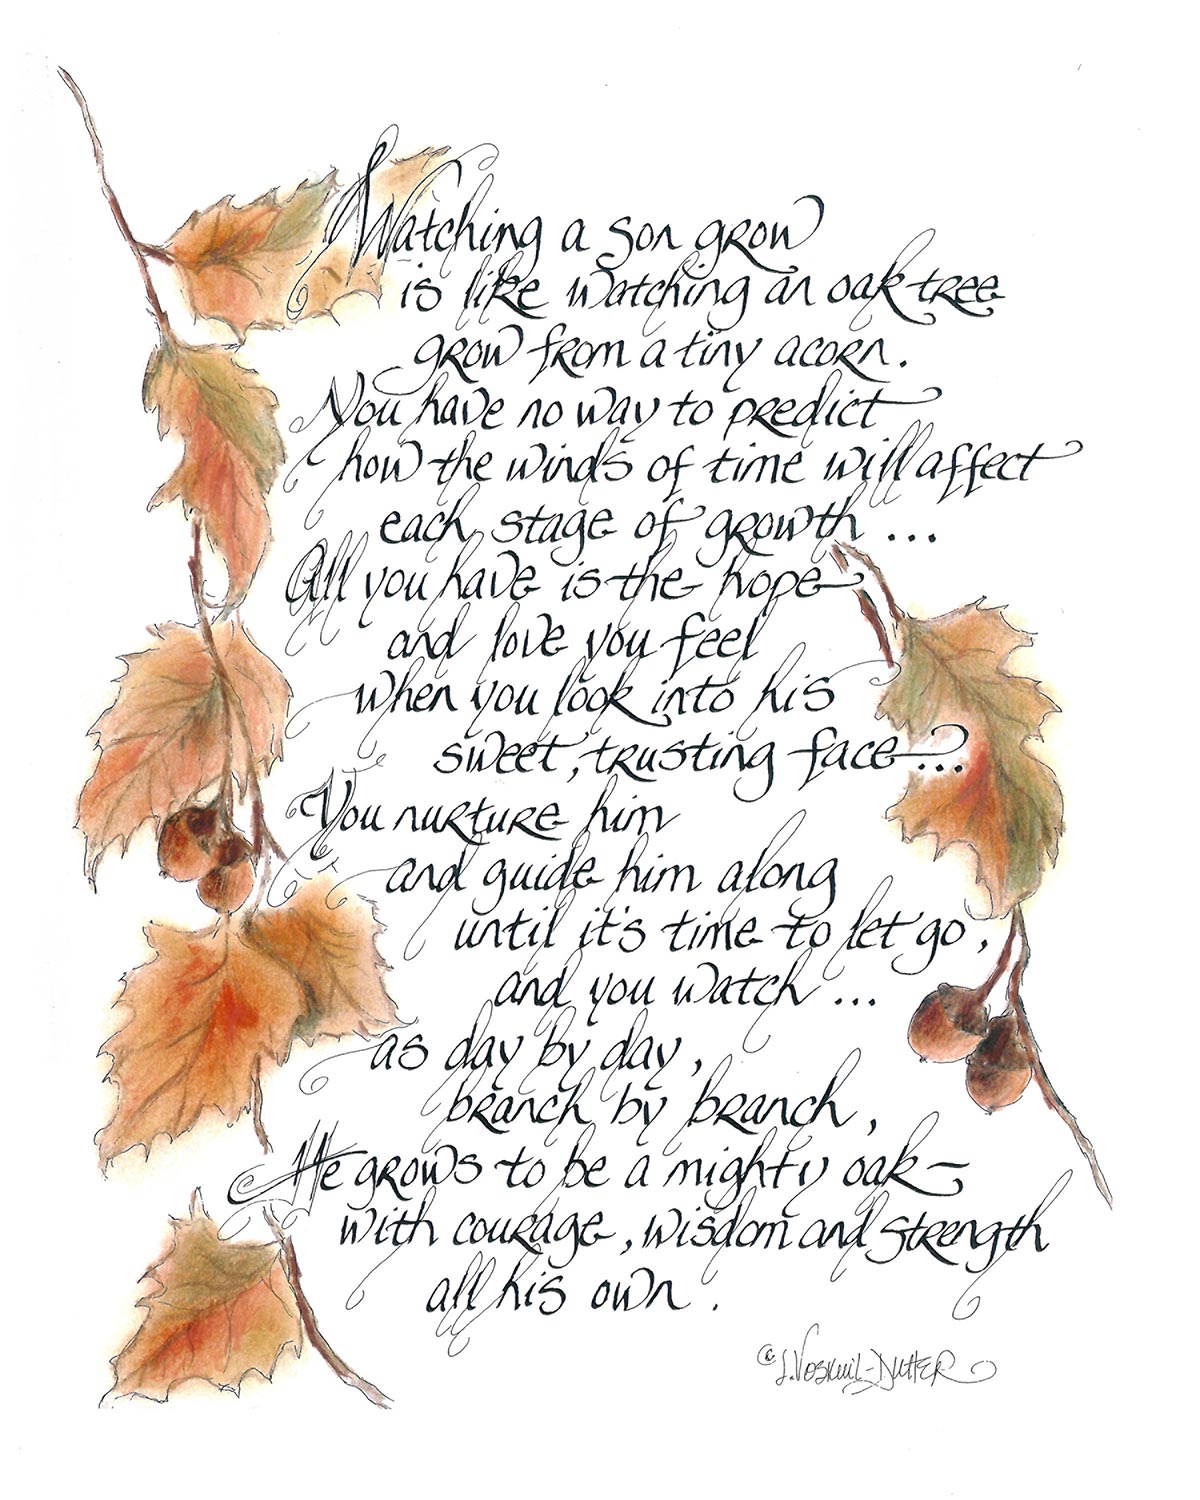 Watching a son grow
is like watching an oak tree
grow from a tiny acorn.
You have no way to predict
how the winds of time will affect
each stage of growth ...
All you have is the hope
and love you feel
when you look into his
sweet, trusting face ...
You nurture him
and guide him along
until it's time to let go,
and you watch ...
as day by day,
branch by branch,
He grows to be a mighty oak -
with courage, wisdom and strength
all his own.
© L. Voskuil-Dutter